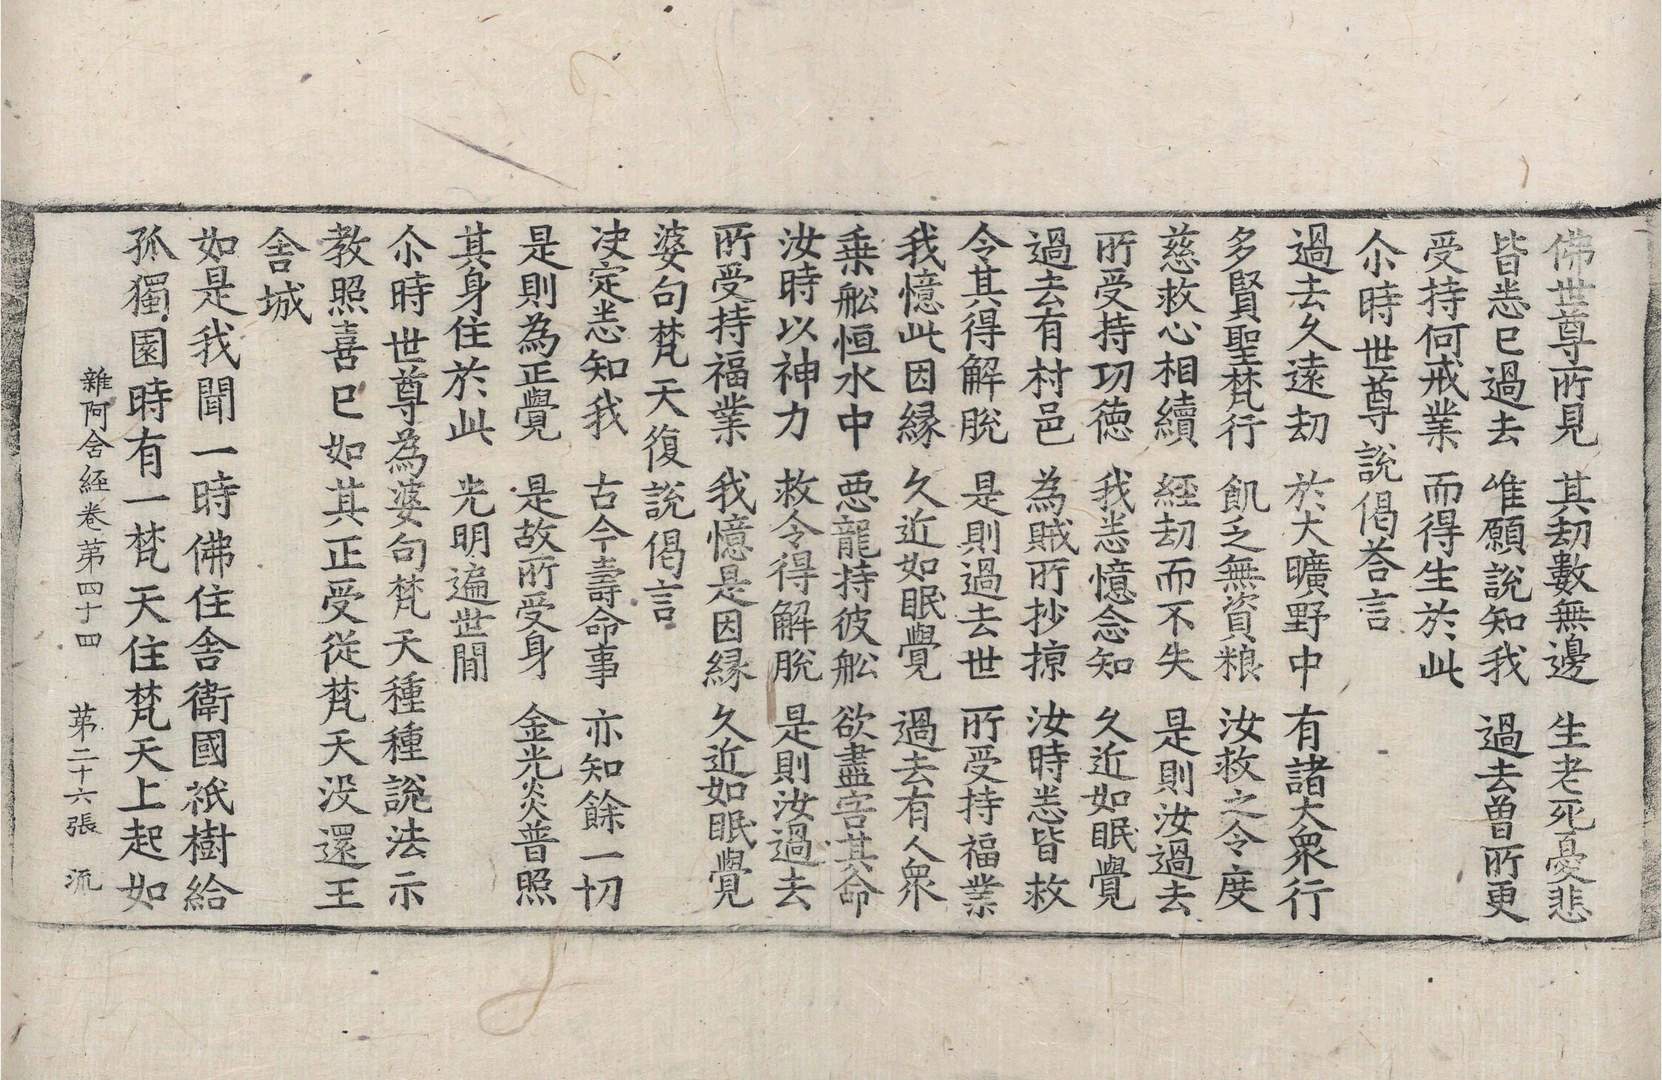 佛世尊所見　其劫數無邊　生老死憂悲
皆悉已過去　唯願說知我　過去曽所更
受持何戒業　而得生於此
尒時世尊說偈荅言
過去久遠劫　於大曠野中　有諸大衆行
多賢聖梵行　飢乏無資粮　汝救之令度
慈救心相續　經劫而不失　是則汝過去
所受持功德　我悉憶念知　久近如眠覺
過去有村邑　為賊所抄掠　汝時悉皆救
令其得解脫　是則過去世　所受持福業
我憶此因緣　久近如眠覺　過去有人衆
乗舩恒水中　惡龍持彼舩　欲盡害其命
汝時以神力　救令得解脫　是則汝過去
所受持福業　我憶是因緣　久近如眠覺
婆句梵天復說偈言
决定悉知我　古今壽命事　亦知餘一切
是則為正覺　是故所受身　金光炎普照
其身住於此　光明遍世間
尒時世尊為婆句梵天種種說法示
教照喜已如其正受從梵天没還王
舍城
如是我聞一時佛住舍衛國祇樹給
孤獨園時有一梵天住梵天上起如
雜阿含經卷第四十四　第二十六張　流